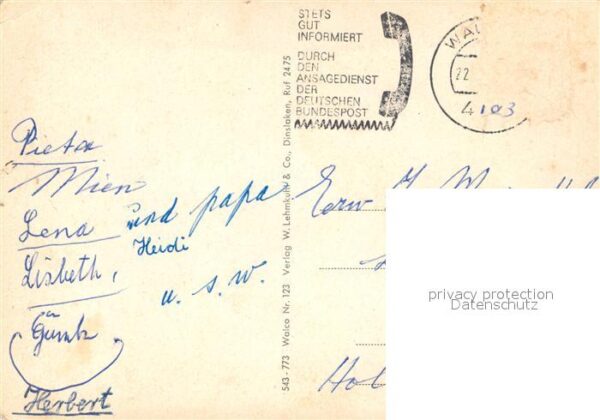 STETS
GUT
INFORMIERT
DURCH
DEN
ANSAGEDIENST
DER
DEUTSCHEN
BUNDESPOST
WAL
22.
4103
543-773 Walco Nr. 123 Verlag W. Lehmkuhl & Co., Dinslaken, Ruf 2475
Pieta
Mien
Lena und papa
Heidi
Lisbeth,
u. s. w.
Herbert
Hol
privacy protection
Datenschutz